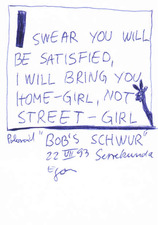 I SWEAR YOU WILL
BE SATISFIED,
I WILL BRING YOU
HOME-GIRL, NOT
STREET-GIRL
"BOB'S SCHWUR"
22 VII 93 Serrekunda